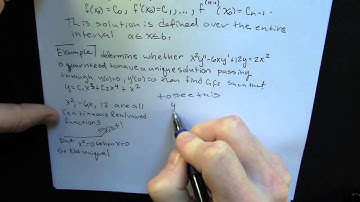 f(x₀) = C₀, f'(x₀) = C₁, ..., f⁽ⁿ⁻¹⁾(x₀) = Cₙ₋₁
This solution is defined over the entire
interval a≤x≤b.
Example) determine whether x²y''-6xy'+12y=2x²
is guaranteed to have a unique solution passing
through y(0)=0, y'(0)=0 then find C₁, C₂ such that
y=C₁x³+C₂x⁴+x²
x²-6x, 12 are all
Continuous Realvalued
Functions
but x²=0 when x=0
So Not unique!
to see this
y